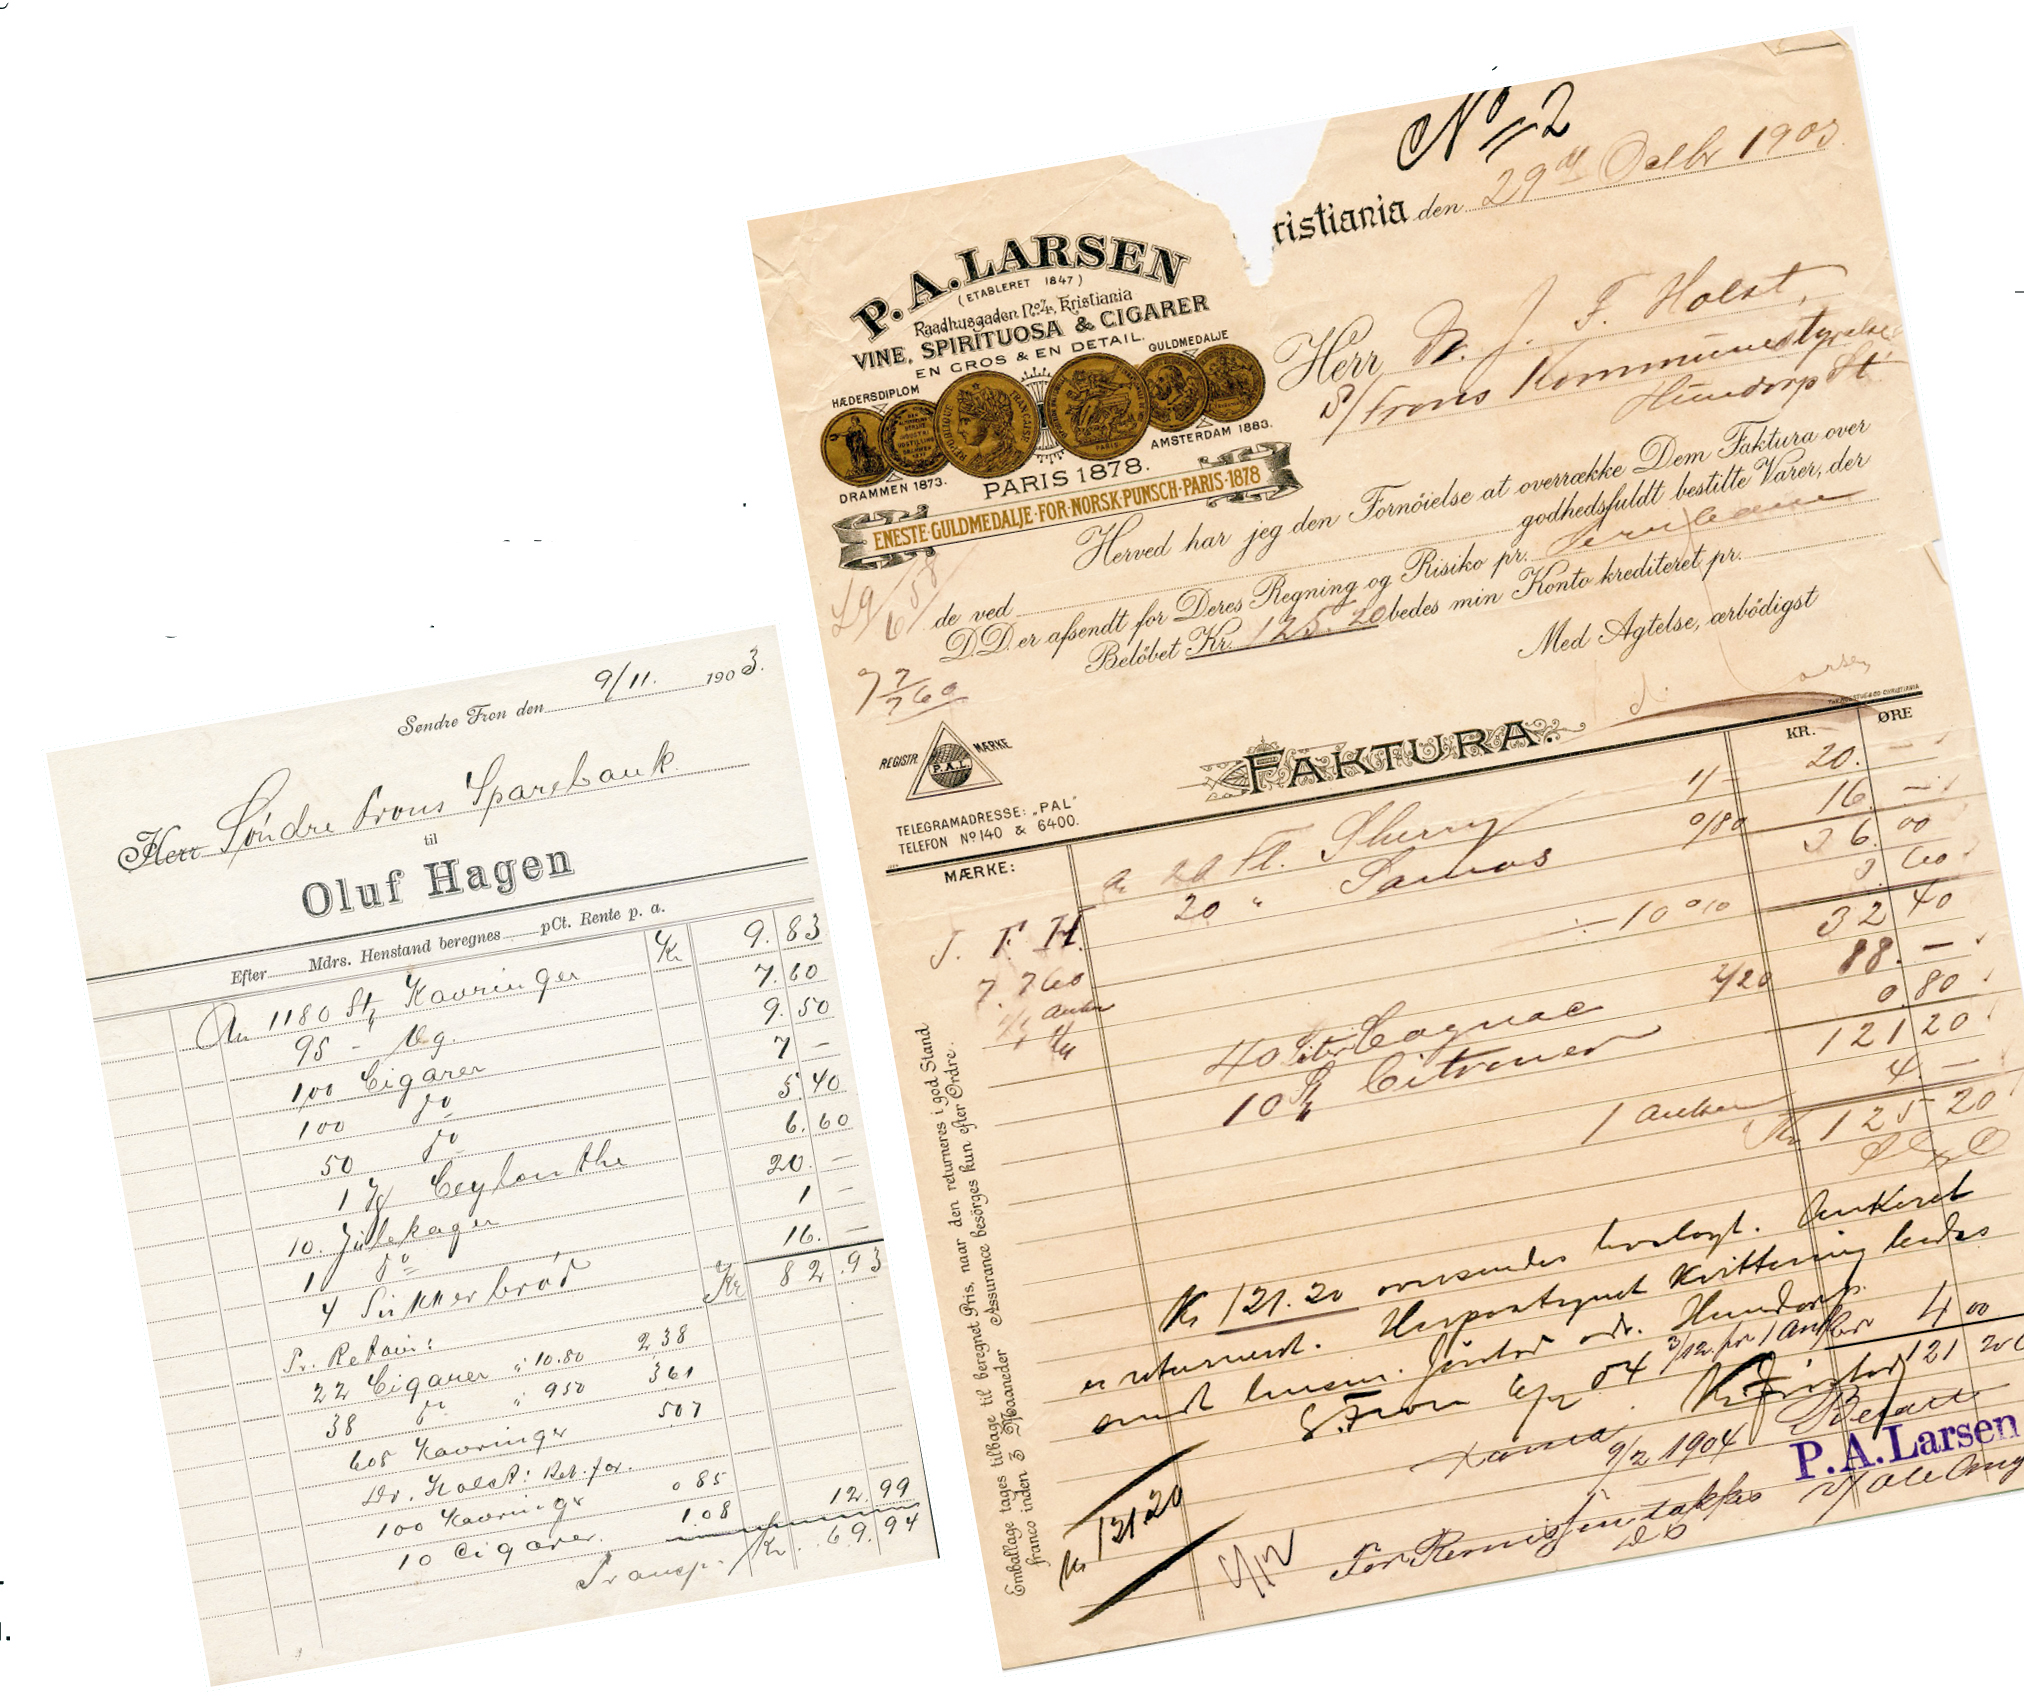 Søndre Fron den 9/11. 1903.
Herr Søndre Frons Sparebank
til
Oluf Hagen
Efter Mdrs. Henstand beregnes pCt. Rente p. a.
An 1180 St. Kavringer Kr 9.83
95 - Vg. 7.60
100 Cigarer 9.50
100 do 7 -
50 do 5.40
1 Ceylon the 6.60
10. Julekager 20. -
1 do 1 -
4 Sukkerbrød 16. -
Kr 82.93
Pr. Retour:
22 Cigarer " 10.80 2,38
38 do " 950 361
608 Kavringer 507
Dr. Holst: Ret. for.
100 Kavringer 0 85
10 Cigarer. 1.08 12.99
Transp. Kr. 69.94
No 2
ristiania den 29 Octbr 1903
P. A. LARSEN
(ETABLERET 1847)
Raadhusgaden No. 4, Kristiania
VINE, SPIRITUOSA & CIGARER
EN GROS & EN DETAIL.
HÆDERSDIPLOM
GULDMEDALJE
DRAMMEN 1873.
PARIS 1878.
AMSTERDAM 1883.
ENESTE·GULDMEDALJE·FOR·NORSK·PUNSCH·PARIS·1878
Herr J. F. Holst,
S/Frons Kommunestyrelse
Hundorp St.
Herved har jeg den Fornöielse at overrække Dem Faktura over
godhedsfuldt bestilte Varer, der
de ved
D.D. er afsendt for Deres Regning og Risiko pr.
Belöbet Kr. 125.20 bedes min Konto krediteret pr.
Med Agtelse, ærbödigst
7760
REGISTR. MÆRKE
P.A.L.
TELEGRAMADRESSE: „PAL"
TELEFON No 140 & 6400.
FAKTURA.
KR. ØRE
MÆRKE:
20 fl. Sherry 1/- 20. -
20 " Samos 0/80 16 -
36. 00
÷ 10 % 3.60
32 40
J. F. H.
7.760
1/1 anker
40 Liter Cognac 2/20 88. -
10 St. Citroner 0.80
121 20
1 anker 4. -
Kr 125 20
Kr 121.20 oversendes vedlagt. Ankeret
er returnert. Kvittering bedes
sendt Hundorp.
S. Fron 04
3/12. pr 1 anker 4 00
Kr. 121 20
Betalt
Xania 9/2 1904
P. A. Larsen
Kr 121.20
For Remissen takkes
Emballage tages tilbage til beregnet Pris, naar den returneres i god Stand
franco inden 3 Maaneder Assurance besörges kun efter Ordre.